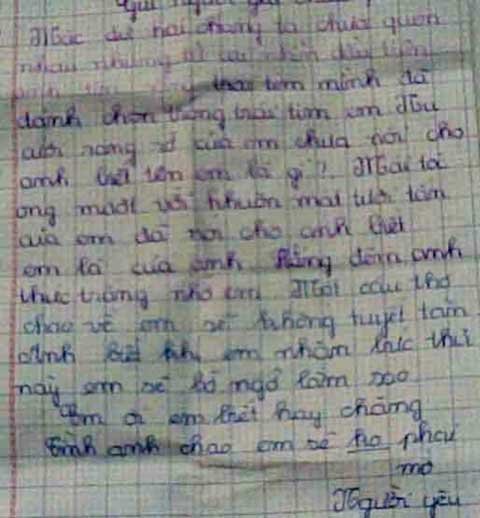 Mặc dù hai chúng ta chưa quen
nhau nhưng từ cái nhìn đầu tiên
trái tim mình đã
dánh chọn trong trái tim em Nụ
cười rạng rỡ của em chưa nói cho
anh biết tên em là gì? Mái tóc
óng mượt với khuôn mặt tươi tắn
của em đã nói cho anh biết
em là của anh Hằng đêm anh
thức trắng nhớ em Một câu thơ
chao về em sẽ không tuyệt tấm
Anh biết khi em nhận bức thư
này em sẽ bỡ ngỡ lắm
Em ơi em biết hay chăng
Tình anh chao em sẽ ho phai
mo
Người yêu